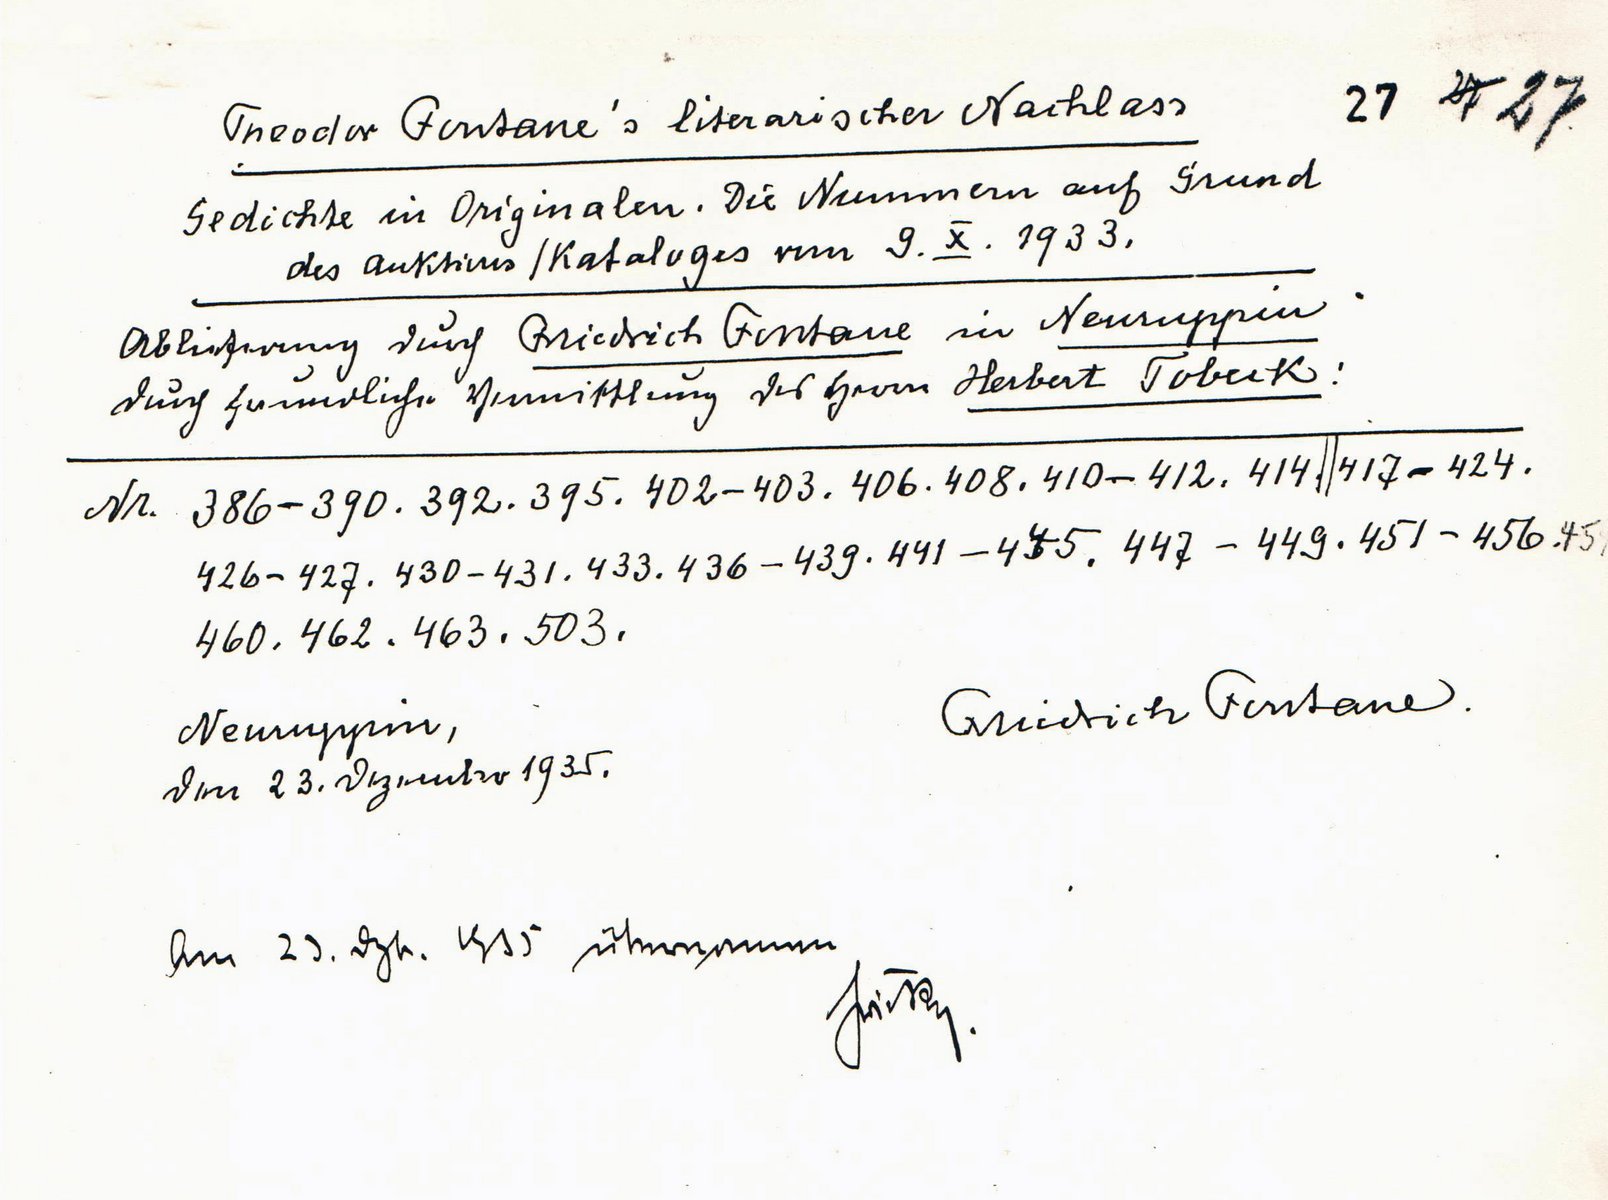 27 27
Theodor Fontane's literarischer Nachlass
Gedichte in Originalen. Die Nummern auf Grund
des Auktions/Kataloges vom 9. X. 1933.
Ablieferung durch Friedrich Fontane in Neuruppin
durch freundliche Vermittlung des Herrn Herbert Tobeck:
Nr. 386-390. 392. 395. 402-403. 406. 408. 410-412. 414. || 417-424.
426-427. 430-431. 433. 436-439. 441-445. 447-449. 451-456. 45
460. 462. 463. 503.
Friedrich Fontane.
Neuruppin,
den 23. Dezember 1935.
Am 23. Dzb. 1935 übernommen